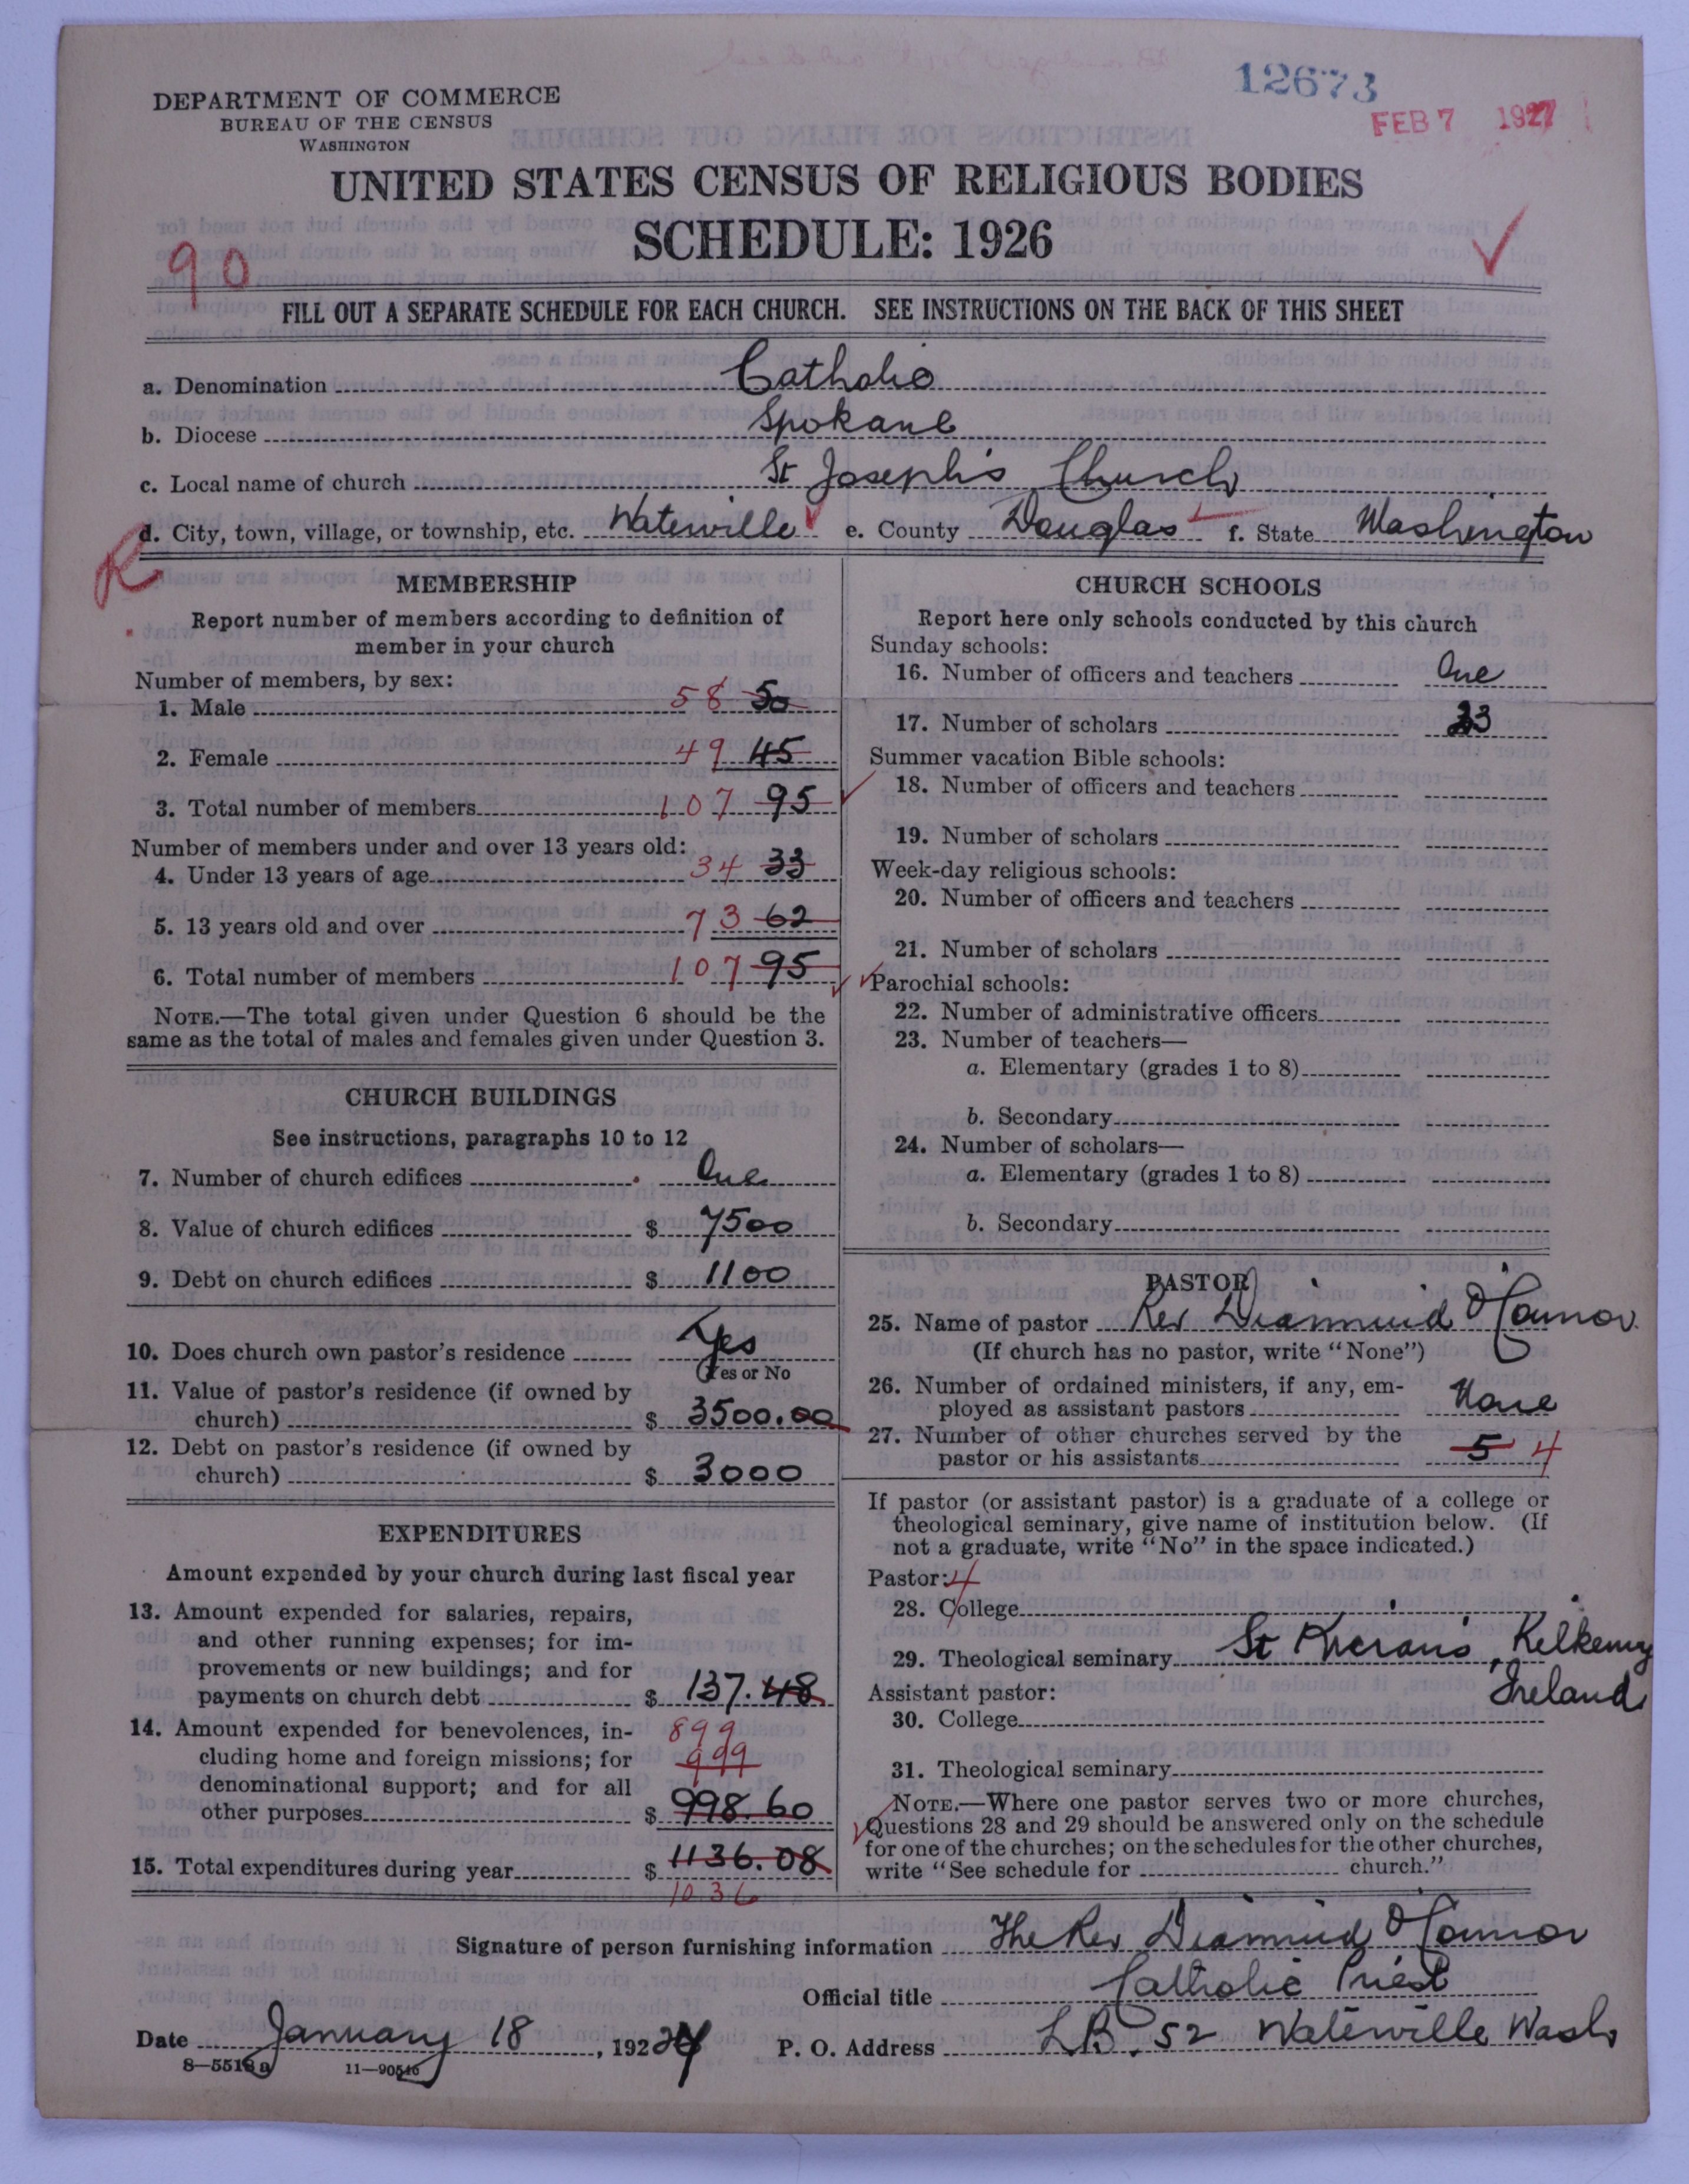 12673
FEB 7 1927
DEPARTMENT OF COMMERCE
BUREAU OF THE CENSUS
WASHINGTON
UNITED STATES CENSUS OF RELIGIOUS BODIES
SCHEDULE: 1926
90
FILL OUT A SEPARATE SCHEDULE FOR EACH CHURCH. SEE INSTRUCTIONS ON THE BACK OF THIS SHEET
a. Denomination Catholic
b. Diocese Spokane
c. Local name of church St Joseph's Church
d. City, town, village, or township, etc. Waterville e. County Douglas f. State Washington
R
MEMBERSHIP
Report number of members according to definition of
member in your church
Number of members, by sex:
1. Male 58 50
2. Female 49 45
3. Total number of members 107 95
Number of members under and over 13 years old:
4. Under 13 years of age 34 33
5. 13 years old and over 73 62
6. Total number of members 107 95
NOTE.—The total given under Question 6 should be the
same as the total of males and females given under Question 3.
CHURCH BUILDINGS
See instructions, paragraphs 10 to 12
7. Number of church edifices One
8. Value of church edifices $ 7500
9. Debt on church edifices $ 1100
10. Does church own pastor's residence Yes
(Yes or No
11. Value of pastor's residence (if owned by
church) $ 3500.00
12. Debt on pastor's residence (if owned by
church) $ 3000
EXPENDITURES
Amount expended by your church during last fiscal year
13. Amount expended for salaries, repairs,
and other running expenses; for im-
provements or new buildings; and for
payments on church debt $ 137.48
14. Amount expended for benevolences, in- 899
cluding home and foreign missions; for 999
denominational support; and for all
other purposes $ 998.60
15. Total expenditures during year $ 1136.08
1036
CHURCH SCHOOLS
Report here only schools conducted by this church
Sunday schools:
16. Number of officers and teachers One
17. Number of scholars 23
Summer vacation Bible schools:
18. Number of officers and teachers
19. Number of scholars
Week-day religious schools:
20. Number of officers and teachers
21. Number of scholars
Parochial schools:
22. Number of administrative officers
23. Number of teachers—
a. Elementary (grades 1 to 8)
b. Secondary
24. Number of scholars—
a. Elementary (grades 1 to 8)
b. Secondary
PASTOR
25. Name of pastor Rev Diarmuid O'Connor
(If church has no pastor, write "None")
26. Number of ordained ministers, if any, em-
ployed as assistant pastors None
27. Number of other churches served by the
pastor or his assistants 5 4
If pastor (or assistant pastor) is a graduate of a college or
theological seminary, give name of institution below. (If
not a graduate, write "No" in the space indicated.)
Pastor: 4
28. College
29. Theological seminary St Kieran's, Kilkenny
Ireland
Assistant pastor:
30. College
31. Theological seminary
NOTE.—Where one pastor serves two or more churches,
Questions 28 and 29 should be answered only on the schedule
for one of the churches; on the schedules for the other churches,
write "See schedule for church."
Signature of person furnishing information The Rev Diarmuid O'Connor
Official title Catholic Priest
Date January 18, 1927 P. O. Address L.B. 52 Waterville Wash
8—5518a 11—90546